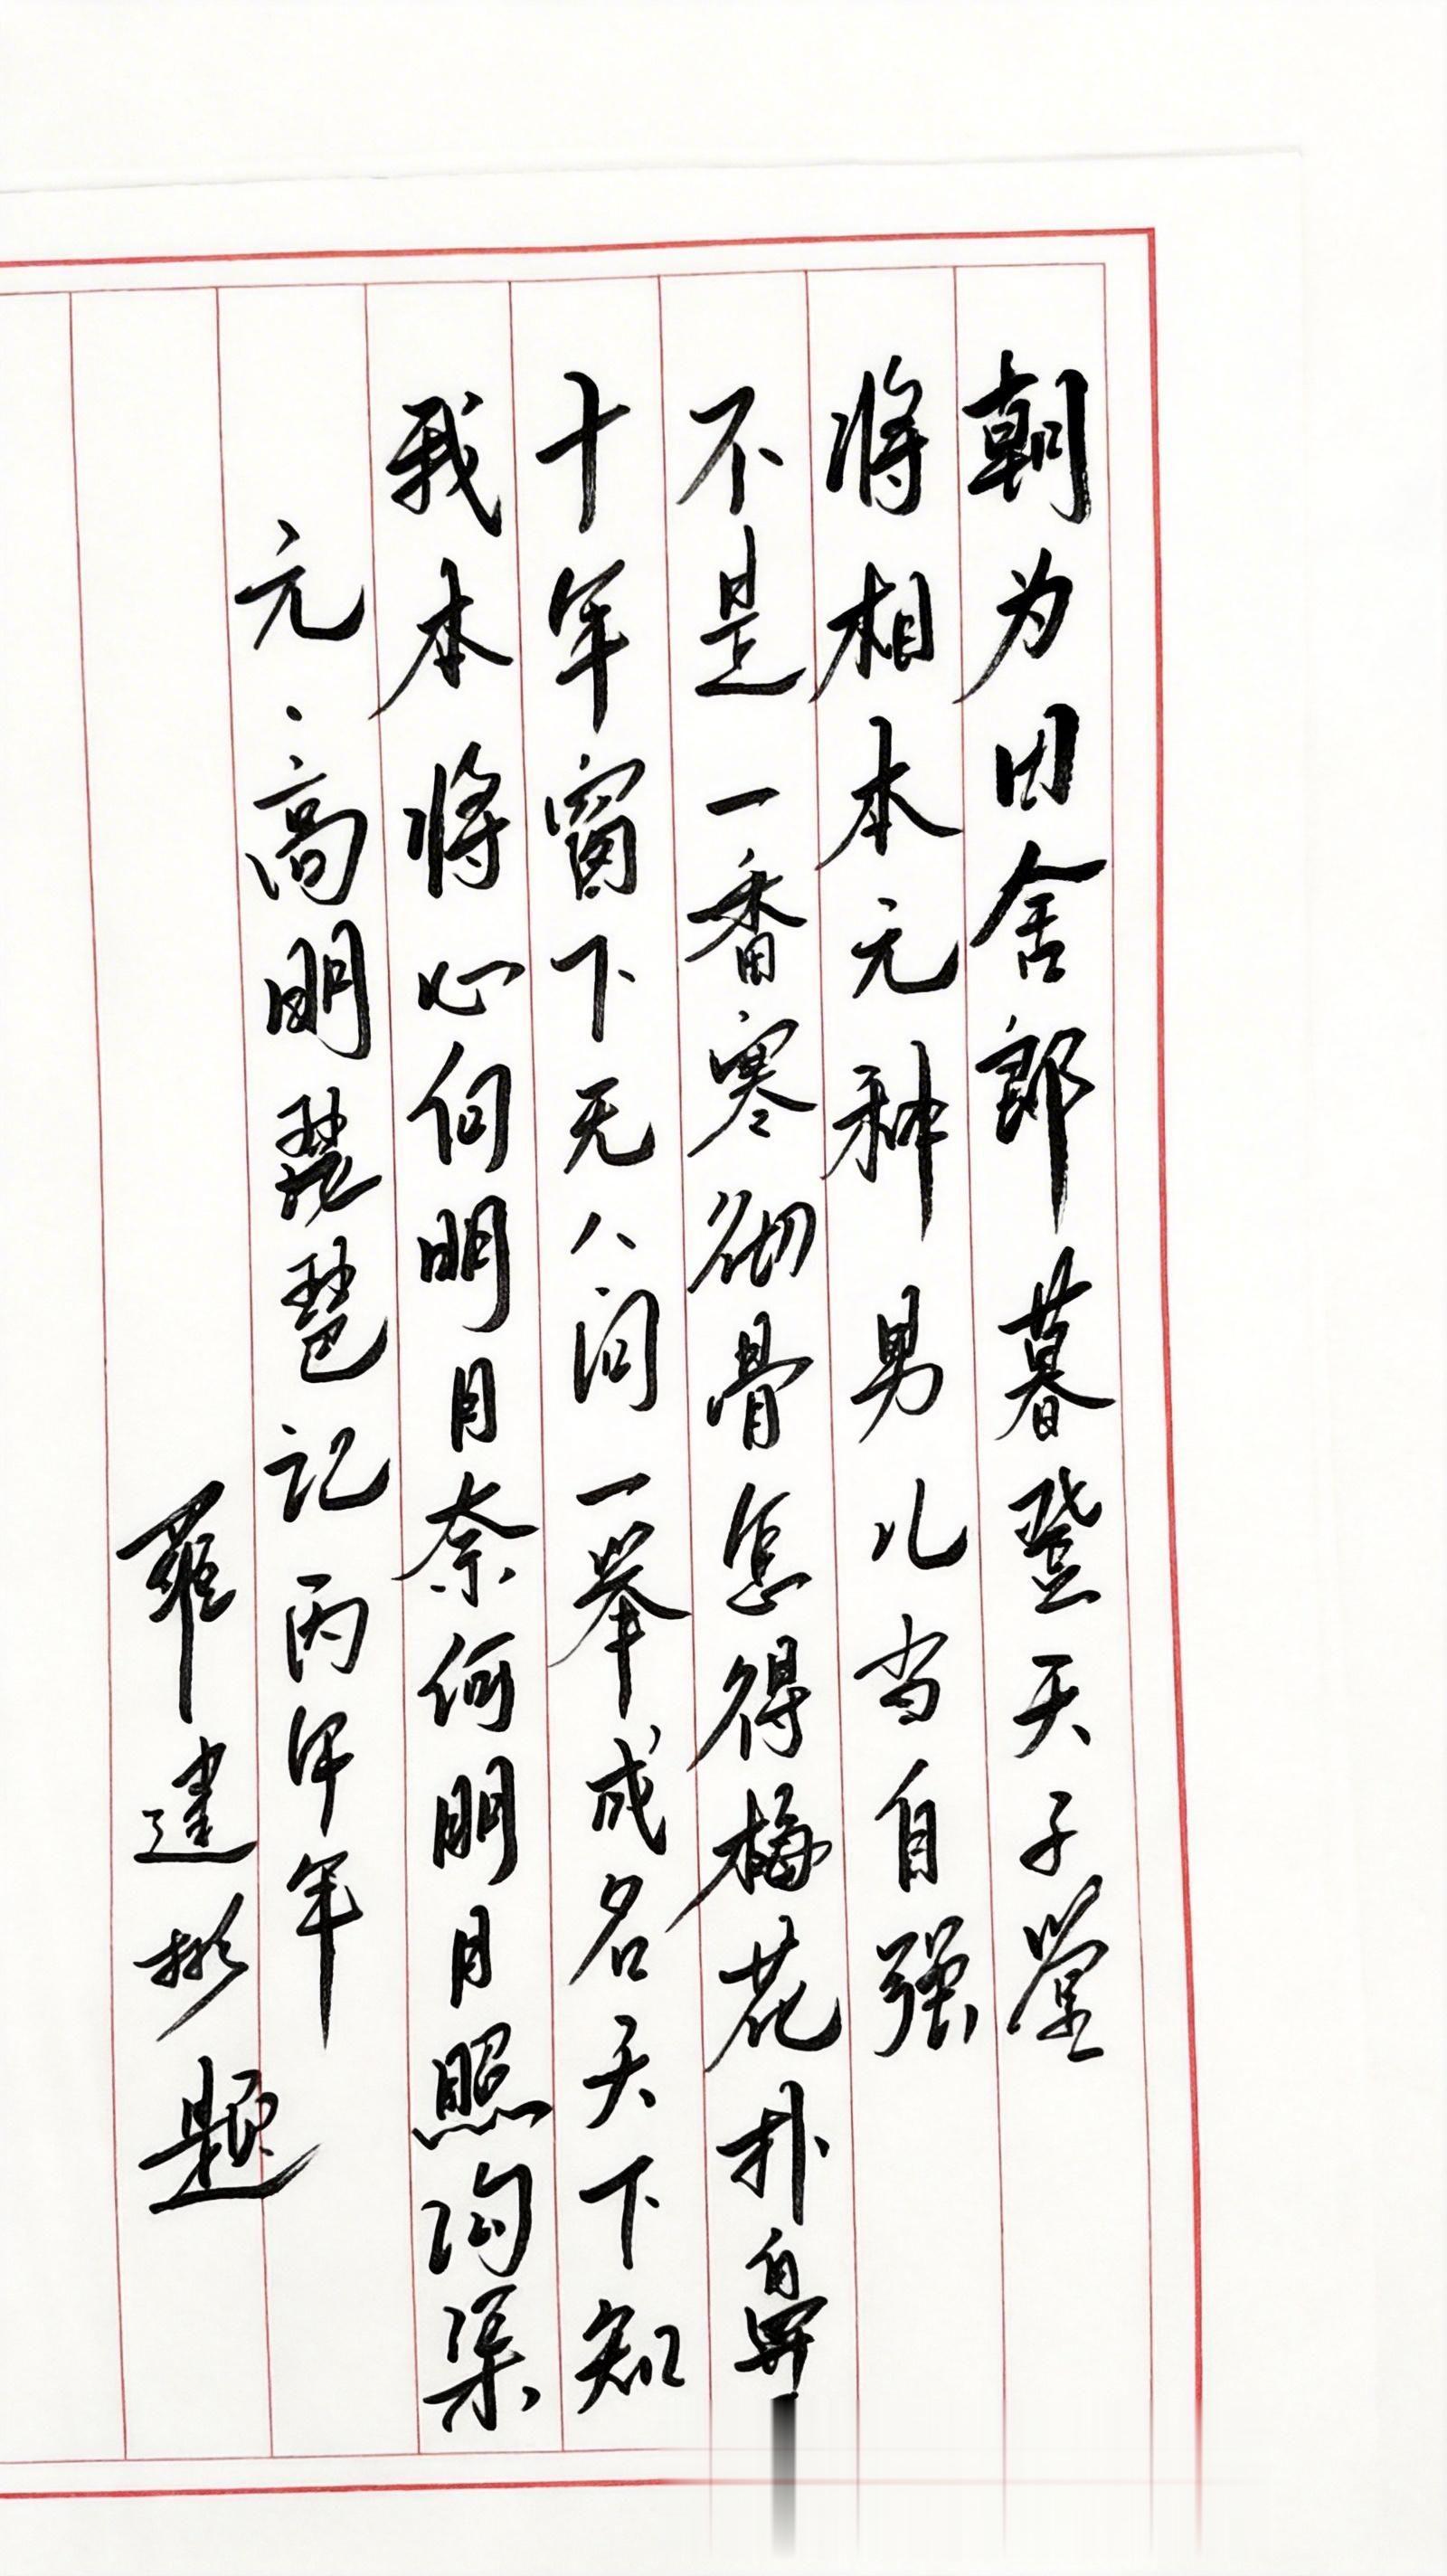 朝为田舍郎暮登天子堂
将相本无种男儿当自强
不是一番寒彻骨怎得梅花扑鼻
十年窗下无人问一举成名天下知
我本将心向明月奈何明月照沟渠
元·高明琵琶记丙午年
罗建彬题